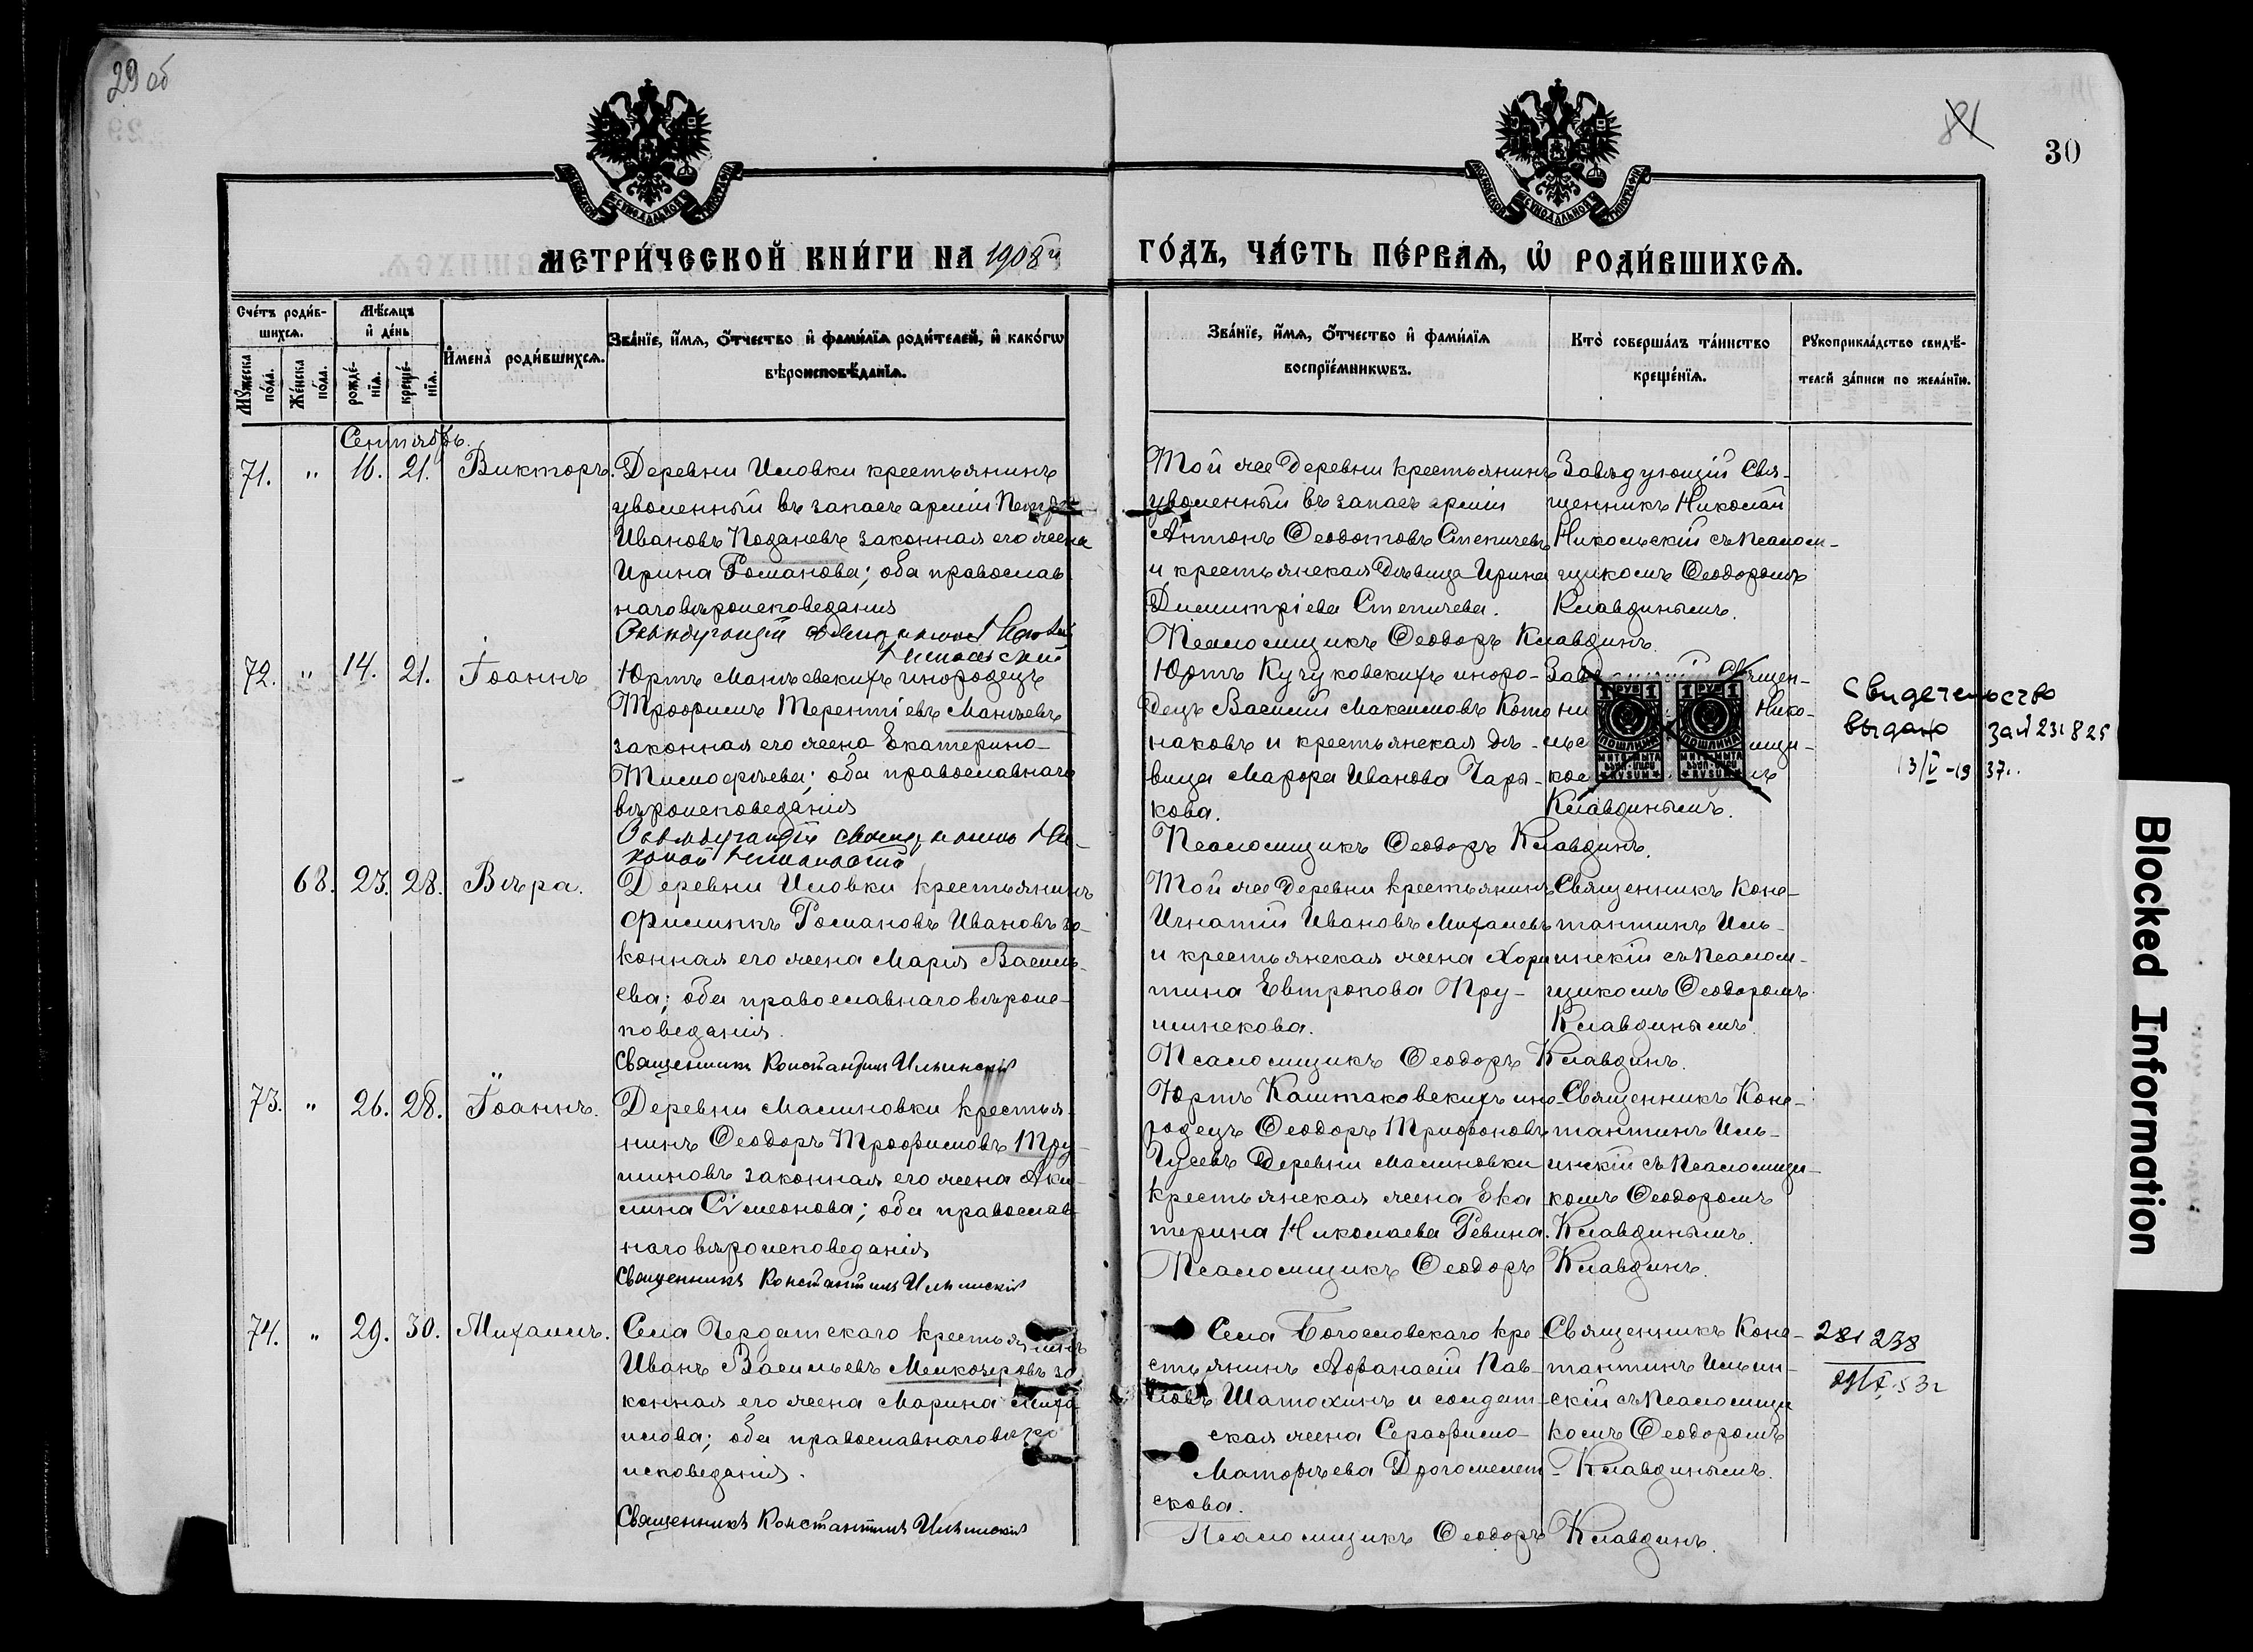 29 об
81
30
МОСКОВСКОЙ СѴНОДАЛЬНОЙ ТИПОГРАФІИ
МОСКОВСКОЙ СѴНОДАЛЬНОЙ ТИПОГРАФІИ
МЕТРИ́ЧЕСКОЙ КНИ́ГИ НА 1908й
ГО́ДЪ, ЧА́СТЬ ПЕ́РВАѦ, Ѽ РОДИ́ВШИХСѦ.
Сче́тъ роди́в-
шихсѧ.
Мѣ́сѧцъ
и҆ де́нь
Мꙋ́жеска
по́ла.
Же́нска
по́ла.
рожде́-
нїѧ.
креще́-
нїѧ.
И҆мена̀ роди́вшихсѧ.
Зва́нїе, и҆́мѧ, ѻ҆́тчество и҆ фами́лїѧ роди́телей, и҆ како́гѡ
вѣроисповѣ́данїѧ.
Зва́нїе, и҆́мѧ, ѻ҆́тчество и҆ фами́лїѧ
воспрїе́мникѡвъ.
Кто̀ соверша́лъ та́инство
креще́нїѧ.
Рꙋкоприкла́дство свидѣ́-
телей за́писи по жела́нїю.
Сентябрь.
71. " 16. 21. Викторъ.
Деревни Иловки крестьянинъ
уволенный въ запасъ арміи Петръ
Ивановъ Поданевъ законная его жена
Ирина Романова; оба православ
наго вѣроисповеданія
Той же деревни крестьянинъ
уволенный въ запасъ арміи
Антонъ Ѳеодотовъ Степичевъ
и крестьянская дѣвица Ирина
Димитріева Степичева.
Псаломщикъ Ѳеодоръ Клавдинъ.
Завѣдующій Свя-
щенникъ Николай
Никольскій съ псалом-
щикомъ Ѳеодоромъ
Клавдинымъ.
72. " 14. 21. Іоаннъ
Юртъ Манъевскихъ инородецъ
Трофимъ Терентіевъ Манъевъ
законная его жена Екатерина
Тимофѣева; оба православнаго
вѣроисповеданія
Юртъ Кучуковскихъ иноро-
децъ Василій Максимовъ Кото
наковъ и крестьянская дѣ-
вица Марфа Иванова Чары-
кова.
Псаломщикъ Ѳеодоръ Клавдинъ.
Клавдинымъ.
1 РУБ 1
1 РУБ 1
ПОШЛИНА
ПОШЛИНА
Свидетельство
выдано за № 231825
13/V-1937.
68. 23. 28. Вѣра.
Деревни Иловки крестьянинъ
Филиппъ Романовъ Ивановъ за-
конная его жена Марія Василь-
ева; оба православнаго вѣроис-
поведанія.
Священникъ Константинъ Ильинскій
Той же деревни крестьянинъ
Игнатій Ивановъ Михалевъ
и крестьянская жена Хари
тина Евтропова Пру-
шинскова.
Псаломщикъ Ѳеодоръ Клавдинъ.
Священникъ Конс-
тантинъ Иль-
инскій съ псалом-
щикомъ Ѳеодоромъ
Клавдинымъ.
73. " 26. 28. Іоаннъ.
Деревни Малиновки крестья-
нинъ Ѳеодоръ Трофимовъ Тру-
шиновъ законная его жена Аку-
лина Сѵмеонова; оба православ
наго вѣроисповеданія
Священникъ Константинъ Ильинскій
Юртъ Каштаковскихъ ино-
родецъ Ѳеодоръ Трифоновъ
Гусевъ деревни Малиновки
крестьянская жена Ека
терина Николаева Ревина.
Псаломщикъ Ѳеодоръ Клавдинъ.
Священникъ Конс-
тантинъ Иль-
инскій съ псаломщи-
комъ Ѳеодоромъ
Клавдинымъ.
74. " 29. 30. Михаилъ.
Села Чердатскаго крестьянинъ
Иванъ Васильевъ Мелкозеровъ за
конная его жена Марина Миха
илова; оба православнаго вѣро
исповеданія.
Священникъ Константинъ Ильинскій
Села Богословскаго кре
стьянинъ Аѳанасій Пав-
ловъ Шатохинъ и солдат-
ская жена Серафима
Матофѣева Драгомелет
скова.
Псаломщикъ Ѳеодоръ Клавдинъ.
Священникъ Конс-
тантинъ Ильин-
скій съ псаломщи
комъ Ѳеодоромъ
Клавдинымъ.
281238
Blocked Information